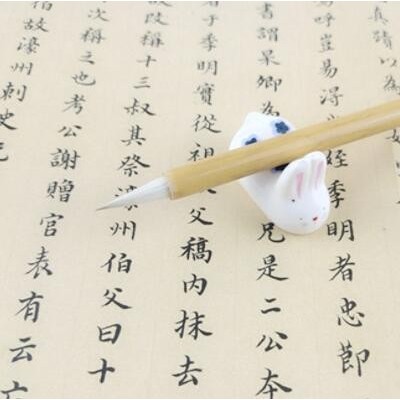 真蹟以為
呼豈易得姪季明者忠節
書謂杲卿為兄是二公本
于季明實從祖父稿內抹去
改稱十三叔其祭濠州伯父曰十
次稱之也考公謝贈官表有云
伯故濠州刺史